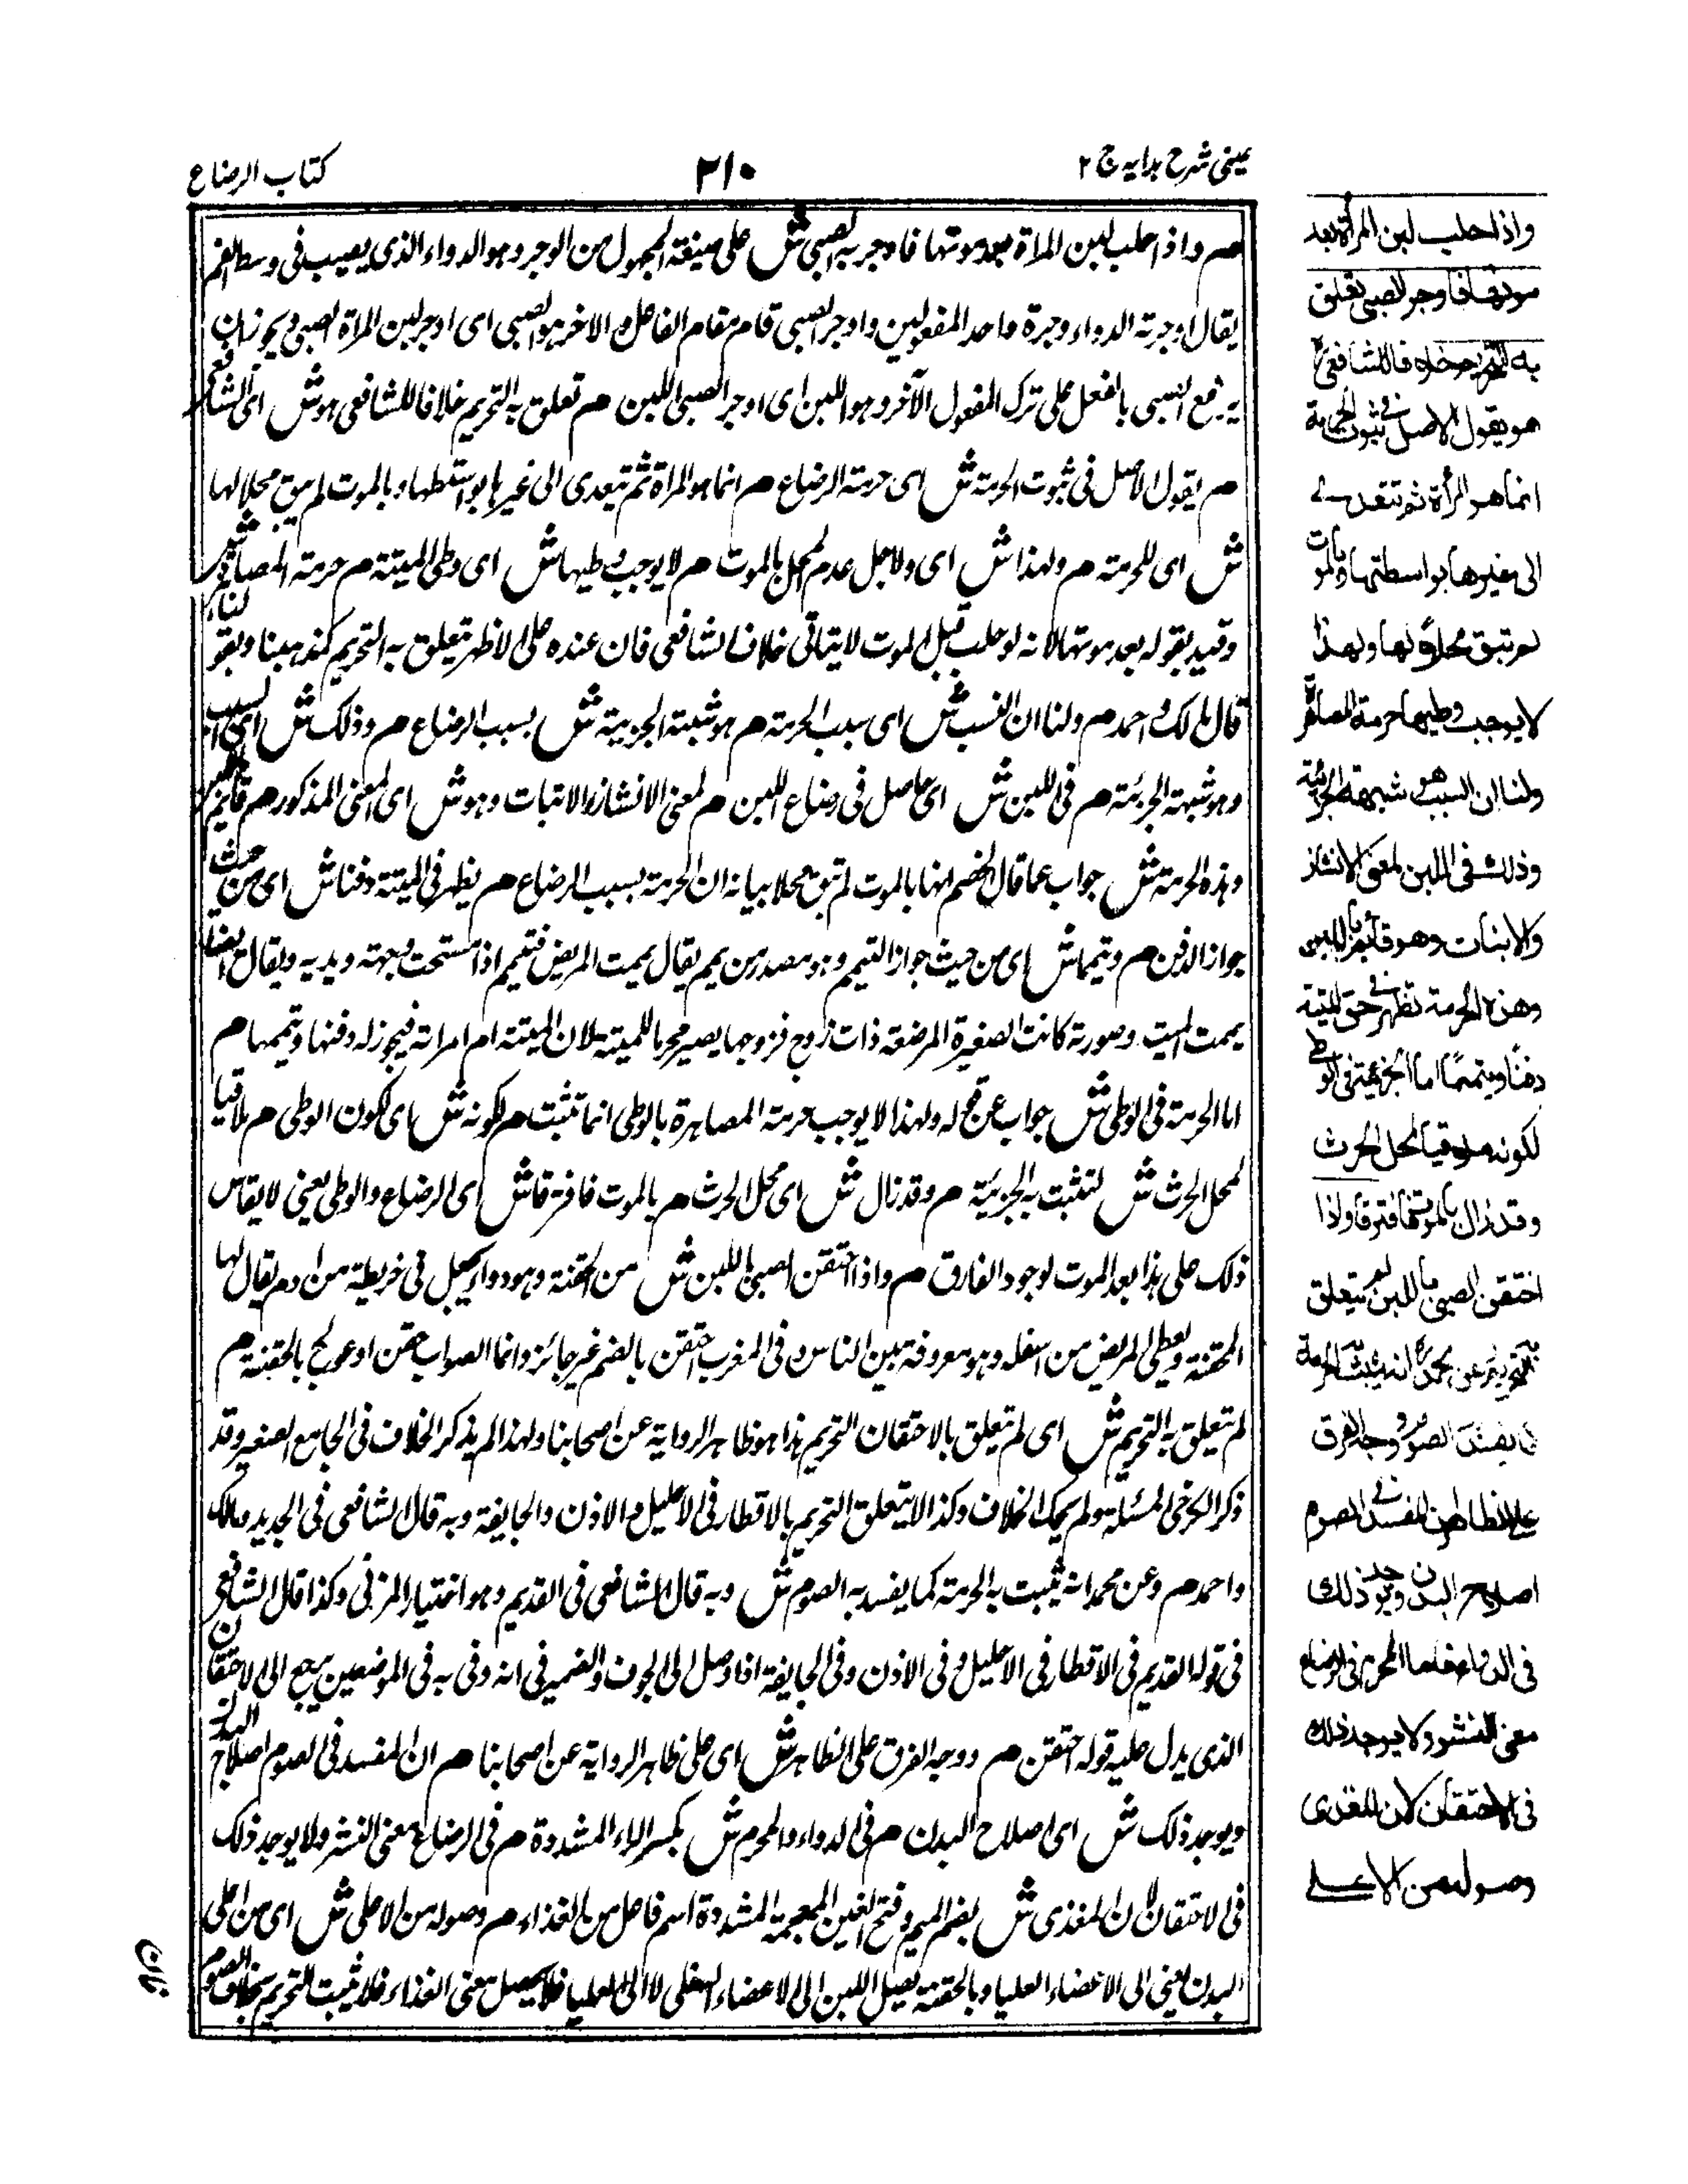 عینی شرح ہدایہ ج ۲
۲۱۰
کتاب الرضاع
م واذا حلب لبن المراة بعد موتها فاوجر به الصبی ش علی صیغة المجهول من الوجر وهو الدواء الذی یصیب فی وسط الفم
یقال اوجرته الدواء وجرة واحد المفعولین واوجر الصبی قام مقام الفاعل والاخر هو الصبی ای اوجر لبن المراة الصبی ویجوز ان
یرفع الصبی بالفعل علی ترک المفعول الآخر وهو اللبن ای اوجر الصبی اللبن م تعلق به التحریم خلافا للشافعی هو ش ای الشافعی
م یقول الاصل فی ثبوت الحرمة ش ای حرمة الرضاع م انما هو المراة ثم تتعدی الی غیرها بواسطتها وبالموت لم یبق محلا لها
ش ای للحرمة م ولهذا ش ای ولاجل عدم المحل بالموت م لا یوجب وطیها ش ای وطی المیتة م حرمة المصاهرة ش
وقید بقوله بعد موتها لانه لو حلب قبل الموت لا یتاتی خلاف الشافعی فان عنده علی الاظهر یتعلق به التحریم کمذهبنا وبقولنا
قال مالک واحمد م ولنا ان السبب ش ای سبب الحرمة م هو شبهة الجزئیة ش بسبب الرضاع م وذلک ش ای السبب
وهو شبهة الجزئیة م فی اللبن ش ای حاصل فی رضاع اللبن م لمعنی الانشاز والانبات وهو ش ای المعنی المذکور م قایم
وهذه الحرمة ش جواب عما قال الخصم انها بالموت لم تبق محلا بیانه ان الحرمة بسبب الرضاع م یظهر فی المیتة دفنا ش ای من حیث
جواز الدفن م وتیمما ش ای من حیث جواز التیمم وهو مصدر من یمم یقال یممت المریض فتیمم اذا مسحت وجهه ویدیه ویقال ایضا
یممت المیت وصورته کانت الصغیرة المرضعة ذات زوج فزوجها یصیر محرما للمیتة لان المیتة ام امراته فیجوز له دفنها وتیممها م
اما الحرمة فی الوطی ش جواب عن قوله ولهذا لا یوجب حرمة المصاهرة بالوطی انما تثبت م لکونه ش ای لکون الوطی م ملاقیا
لمحل الحرث ش لتثبت به الجزئیة م وقد زال ش ای محل الحرث م بالموت فافترقا ش ای الرضاع والوطی یعنی لا یقاس
ذلک علی هذا بعد الموت لوجود الفارق م واذا احتقن الصبی باللبن ش من الحقنة وهو دواء یجعل فی خریطة من ادم یقال لها
المحقنة ویعطی المریض من اسفله وهو معروفة بین الناس وفی المغرب احتقن بالضم غیر جائز وانما الصواب حقن او عولج بالحقنة م
لم تتعلق به التحریم ش ای لم تتعلق بالاحتقان التحریم هذا هو ظاهر الروایة عن اصحابنا ولهذا لم یذکر الخلاف فی الجامع الصغیر وقد
ذکر الکرخی المسئلة ولم یحک الخلاف وکذا لا یتعلق التحریم بالاقطار فی الاحلیل والاذن والجایفة وبه قال الشافعی فی الجدید ومالک
واحمد م وعن محمد انه تثبت به الحرمة کما یفسد به الصوم ش وبه قال الشافعی فی القدیم وهو اختیار المزنی وکذا قال الشافعی
فی قوله القدیم فی الاقطار فی الاحلیل وفی الاذن وفی الجایفة اذا وصل الی الجوف والضمیر فی انه وفی به فی الموضعین یرجع الی الاحتقان
الذی یدل علیه قوله احتقن م ووجه الفرق علی الظاهر ش ای علی ظاهر الروایة عن اصحابنا م ان المفسد فی الصوم اصلاح البدن
ویوجد ذلک ش ای اصلاح البدن م فی الدواء والمحرم ش بکسر الراء المشددة م فی الرضاع معنی النشو ولا یوجد ذلک
فی الاحتقان لان المغذی ش بضم المیم وفتح الغین المعجمة المشددة اسم فاعل من الغذاء م وصوله من الاعلی ش ای من اعلی
البدن یعنی الی الاعضاء العلیا وبالحقنة یصل اللبن الی الاعضاء السفلی لا الی العلیا فلا یحصل معنی الغذاء فلا یثبت التحریم بخلاف الصوم
فان
واذا حلب لبن المرأة بعد
موتها فاوجر الصبی تعلق
به التحریم خلافا للشافعی
هو یقول الاصل فی ثبوت الحرمة
انما هو المرأة ثم تتعدی
الی غیرها بواسطتها وبالموت
لم تبق محلا لها ولهذا
لا یوجب وطیها حرمة المصاهرة
ولنا ان السبب هو شبهة الجزئیة
وذلک فی اللبن لمعنی الانشاز
والانبات وهو قائم باللبن
وهذه الحرمة تظهر فی حق المیتة
دفنا وتیمما اما الجزئیة فی الوطی
لکونه ملاقیا لمحل الحرث
وقد زال بالموت فافترقا واذا
احتقن الصبی باللبن لم یتعلق
به التحریم وعن محمد انه تثبت به الحرمة
کما یفسد به الصوم ووجه الفرق
علی الظاهر ان المفسد فی الصوم
اصلاح البدن ویوجد ذلک
فی الدواء فاما المحرم فی الرضاع
معنی النشو ولا یوجد ذلک
فی الاحتقان لان المغذی
وصوله من الاعلی